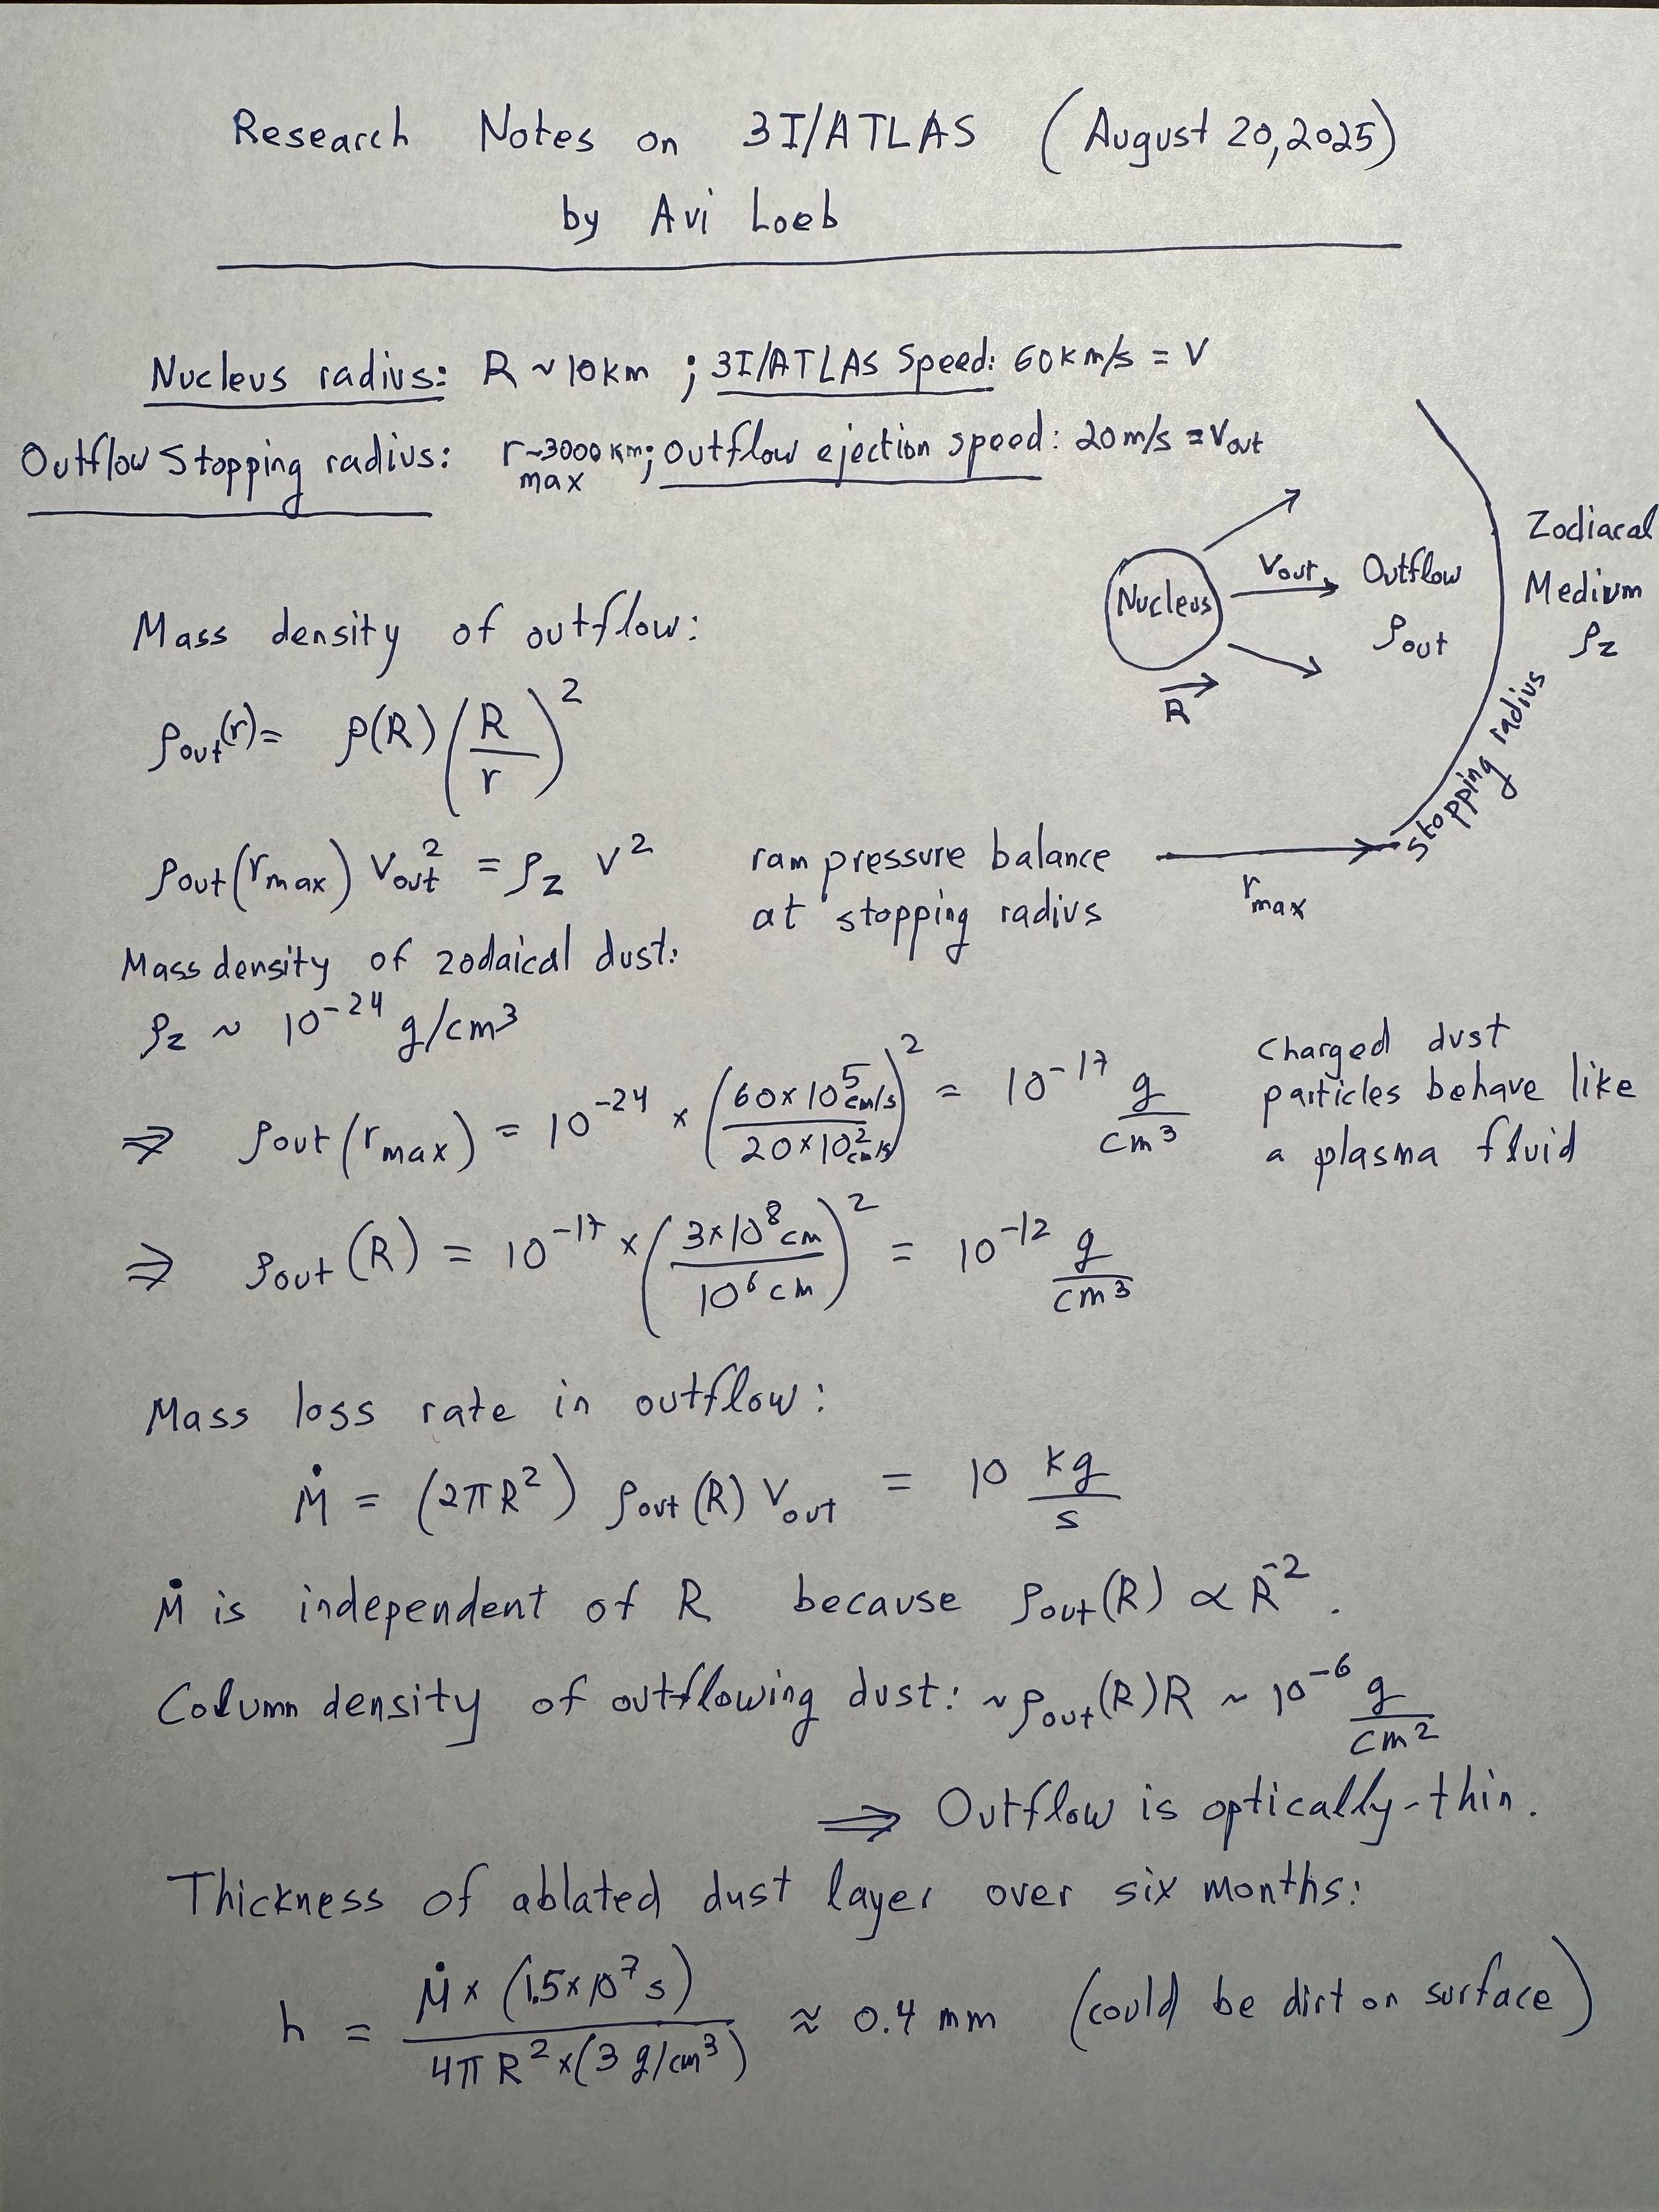 Research Notes on 3I/ATLAS (August 20, 2025)
by Avi Loeb
Nucleus radius: R ~ 10 km ; 3I/ATLAS Speed: 60 km/s = V
Outflow Stopping radius: r_max ~ 3000 km; outflow ejection speed: 20 m/s = v_out
Nucleus
R
v_out
Outflow
ρ_out
Zodiacal
Medium
ρ_z
stopping radius
r_max
Mass density of outflow:
ρ_out(r) = ρ(R) (R/r)^2
ρ_out(r_max) v_out^2 = ρ_z v^2 ram pressure balance
at stopping radius
Mass density of zodaical dust:
ρ_z ~ 10^-24 g/cm^3
charged dust
particles behave like
a plasma fluid
⇒ ρ_out(r_max) = 10^-24 × (60×10^5 cm/s / 20×10^2 cm/s)^2 = 10^-17 g/cm^3
⇒ ρ_out(R) = 10^-17 × (3×10^8 cm / 10^6 cm)^2 = 10^-12 g/cm^3
Mass loss rate in outflow:
Ṁ = (2πR^2) ρ_out(R) v_out = 10 kg/s
Ṁ is independent of R because ρ_out(R) ∝ R^-2.
Column density of outflowing dust: ~ρ_out(R)R ~ 10^-6 g/cm^2
⇒ Outflow is optically-thin.
Thickness of ablated dust layer over six months:
h = Ṁ × (1.5×10^7 s) / 4πR^2×(3 g/cm^3) ≈ 0.4 mm (could be dirt on surface)